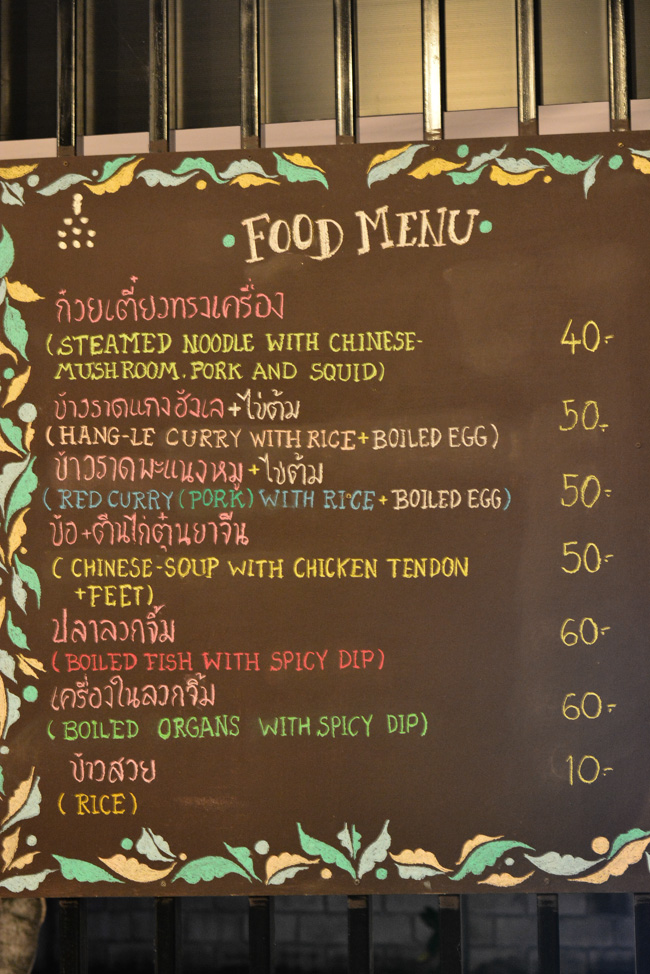 FOOD MENU
ก๋วยเตี๋ยวทรงเครื่อง
(STEAMED NOODLE WITH CHINESE- 40.-
MUSHROOM. PORK AND SQUID)
ข้าวราดแกงฮังเล+ไข่ต้ม 50.-
(HANG-LE CURRY WITH RICE+BOILED EGG)
ข้าวราดพะแนงหมู+ไข่ต้ม 50.-
(RED CURRY (PORK) WITH RICE+BOILED EGG)
ข้อ+ตีนไก่ตุ๋นยาจีน 50.-
(CHINESE-SOUP WITH CHICKEN TENDON
+FEET)
ปลาลวกจิ้ม 60.-
(BOILED FISH WITH SPICY DIP)
เครื่องในลวกจิ้ม 60.-
(BOILED ORGANS WITH SPICY DIP)
ข้าวสวย 10.-
(RICE)